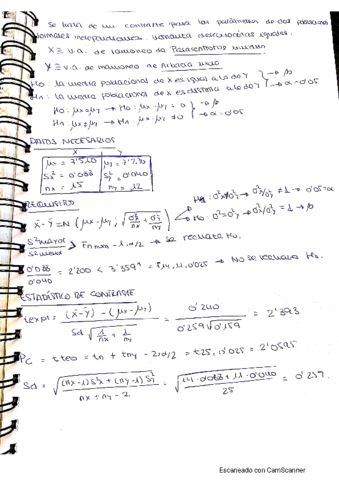 Se trata de un contraste para los parámetros de dos poblaciones
normales independientes. Varianza desconocidas iguales.
X ≡ v.a. de tamoneo de
Y ≡ v.a. de tamoneo de
H0: la media poblacional de X es igual a la de Y
Hn: la media poblacional de X es distinta a la de Y → α = 0'05
H0: μx = μy → H0: μx - μy = 0
Hn: μx ≠ μy → Hn: μx - μy ≠ 0 → α = 0'05
DATOS NECESARIOS
X Y
μx = 7'510 μy = 7'270
Sx² = 0'088 Sy² = 0'040
nx = 15 ny = 12
REQUISITO
x̄ - ȳ ≡ N (μx - μy; √(σx²/nx + σy²/ny))
H0: σx² = σy² → σx²/σy² = 1
S² mayor / S² menor > → Se rechaza H0.
0'088 / 0'040 = 2'200 < 3'359 = F14, 11, 0'025 → No se rechaza H0.
ESTADÍSTICO DE CONTRASTE
texp = ((x̄ - ȳ) - (μx - μy)) / (Sd √(1/nx + 1/ny)) = 0'240 / (0'259 √0'159) = 2'393
PC = t teo = tn + tny - 2, α/2 = t25, 0'025 = 2'0595
Sd = √(((nx - 1) S²x + (ny - 1) S²y) / (nx + ny - 2)) = √((14 · 0'088 + 11 · 0'040) / 25) = 0'259.
Escaneado con CamScanner